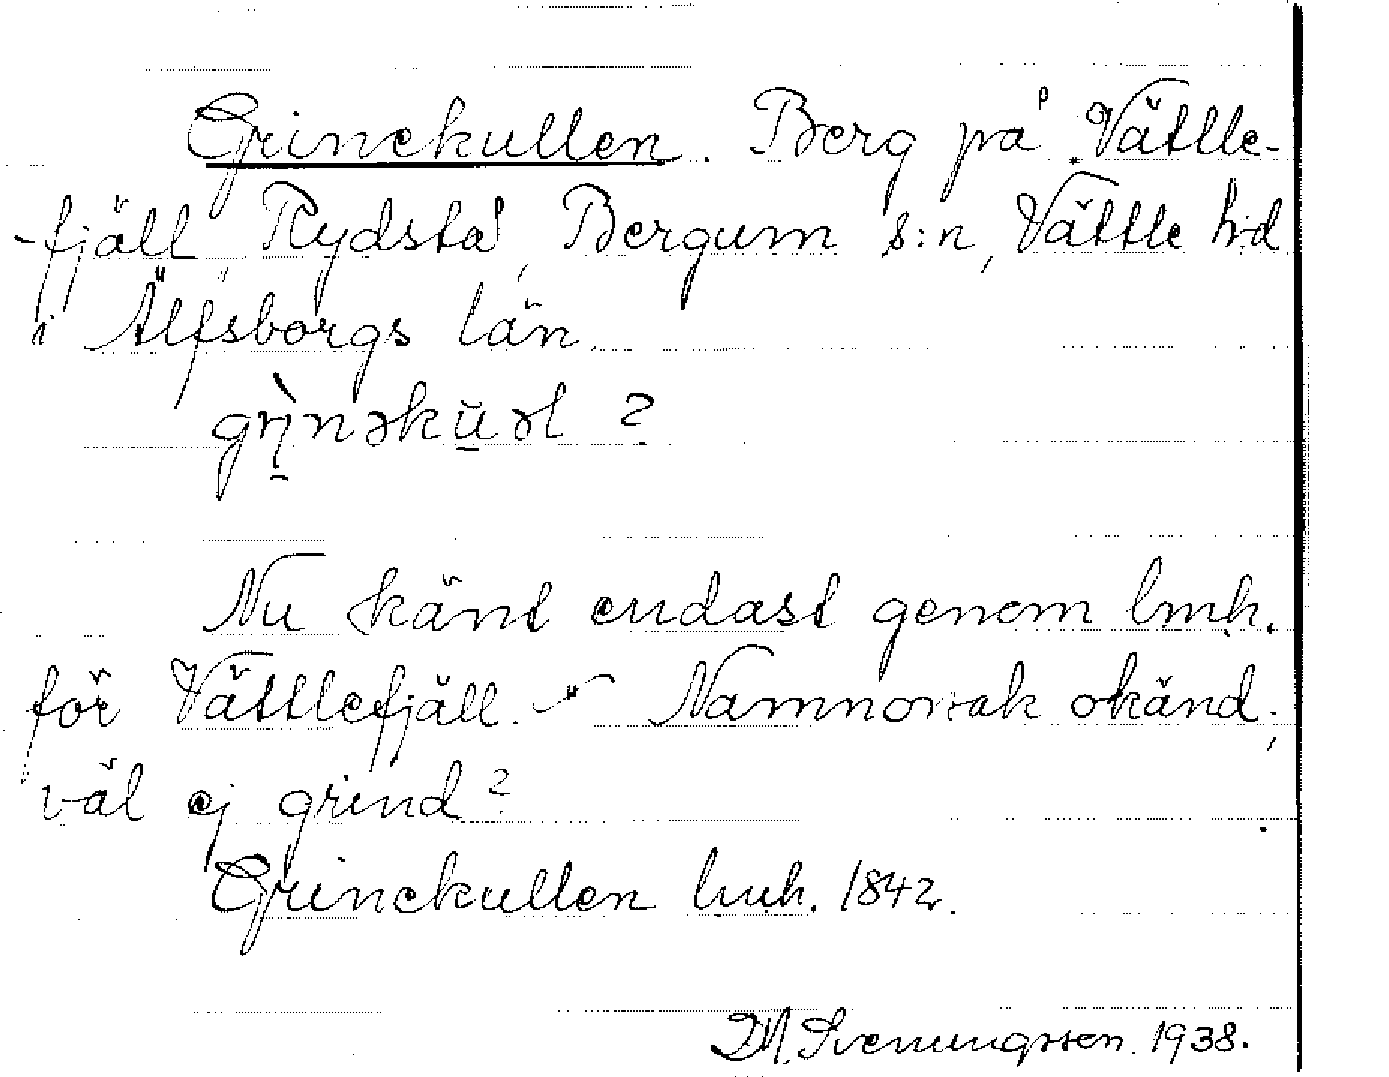 Grinekullen. Berg på Vättle-
fjäll Rydstå, Bergum s:n, Vättle hd
i Älfsborgs län.
grìnəkūəl ?
Nu känt endast genom lmh.
för Vättlefjäll. - Namnorsak okänd;
väl ej grind?
Grinekullen lmh. 1842.
M. Svenungsson. 1938.